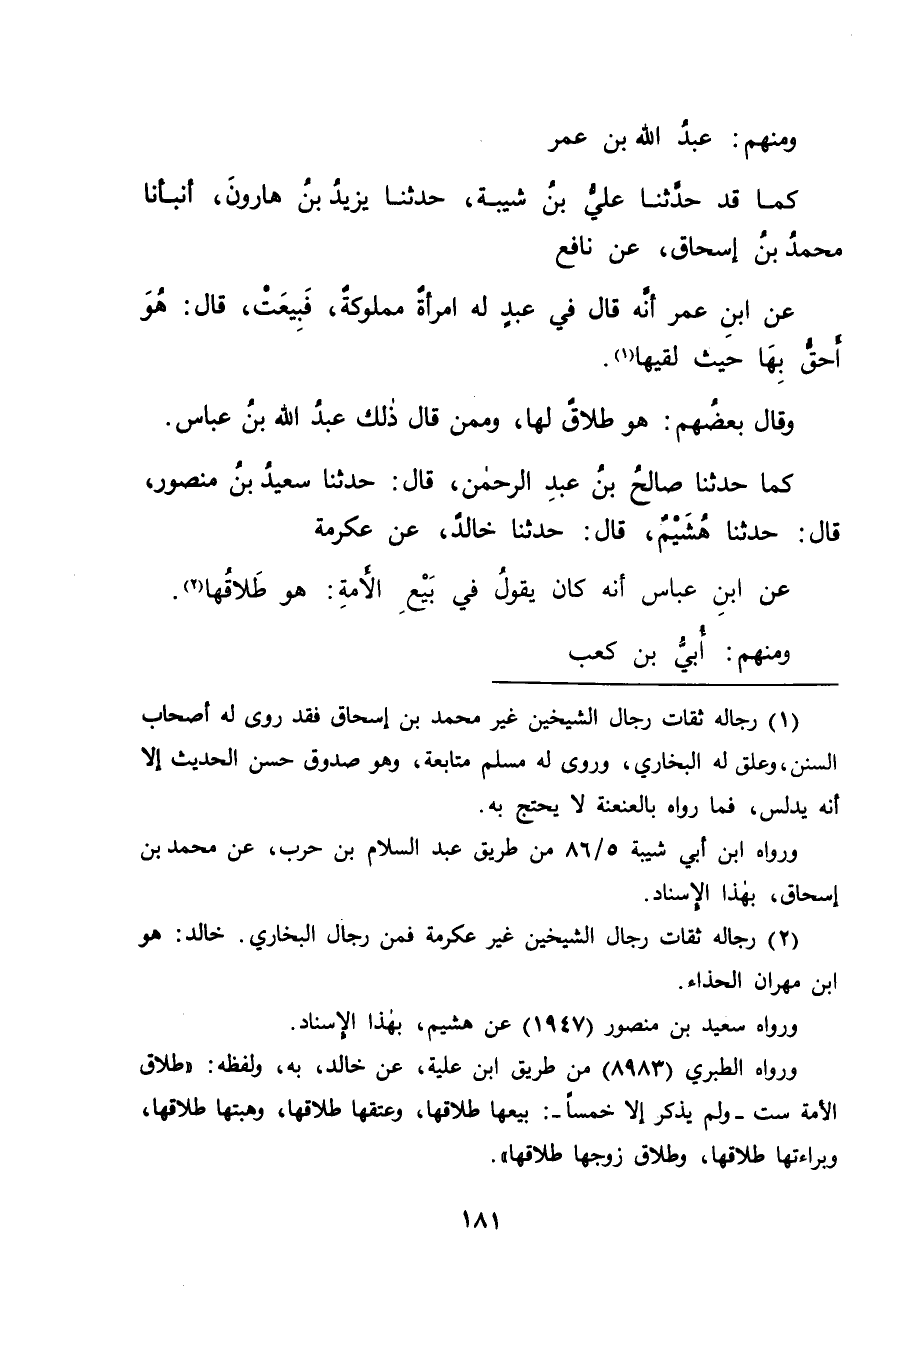 ومنهم: عبدُ الله بن عمر
كما قد حدَّثنا عليُّ بنُ شيبة، حدثنا يزيدُ بنُ هارونَ، أنبأنا
محمدُ بنُ إسحاق، عن نافع
عن ابنِ عمر أنَّه قال في عبدٍ له امرأةٌ مملوكةٌ، فَبِيعَتْ، قال: هُوَ
أَحقُّ بِهَا حيث لقيها(١).
وقال بعضُهم: هو طلاقٌ لها، وممن قال ذٰلك عبدُ الله بنُ عباس.
كما حدثنا صالحُ بنُ عبدِ الرحمٰن، قال: حدثنا سعيدُ بنُ منصور،
قال: حدثنا هُشَيْمٌ، قال: حدثنا خالدٌ، عن عكرمة
عن ابنِ عباس أنه كان يقولُ في بَيْعِ الأَمةِ: هو طَلاقُها(٢).
ومنهم: أُبيُّ بن كعب
(١) رجاله ثقات رجال الشيخين غير محمد بن إسحاق فقد روى له أصحاب
السنن، وعلق له البخاري، وروى له مسلم متابعة، وهو صدوق حسن الحديث إلا
أنه يدلس، فما رواه بالعنعنة لا يحتج به.
ورواه ابن أبي شيبة ٨٦/٥ من طريق عبد السلام بن حرب، عن محمد بن
إسحاق، بهٰذا الإسناد.
(٢) رجاله ثقات رجال الشيخين غير عكرمة فمن رجال البخاري. خالد: هو
ابن مهران الحذاء.
ورواه سعيد بن منصور (١٩٤٧) عن هشيم، بهٰذا الإسناد.
ورواه الطبري (٨٩٨٣) من طريق ابن علية، عن خالد، به، ولفظه: «طلاق
الأمة ست ـ ولم يذكر إلا خمساً ـ: بيعها طلاقها، وعتقها طلاقها، وهبتها طلاقها،
وبراءتها طلاقها، وطلاق زوجها طلاقها».
١٨١